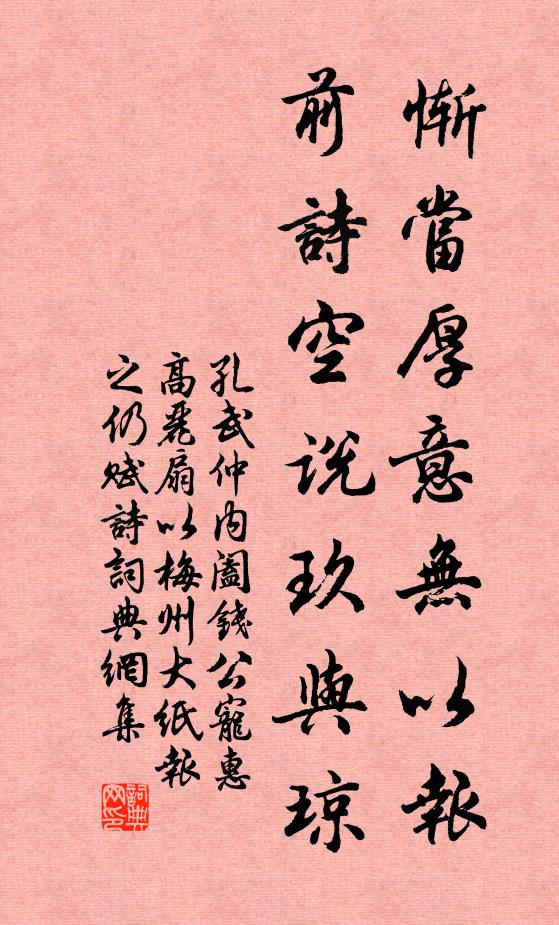 慚當厚意無以報
前詩空説玖與瓊
孔武仲內閣錢公寵惠
高麗扇以梅州大紙報
之仍賦詩詞典網集
詞典网印